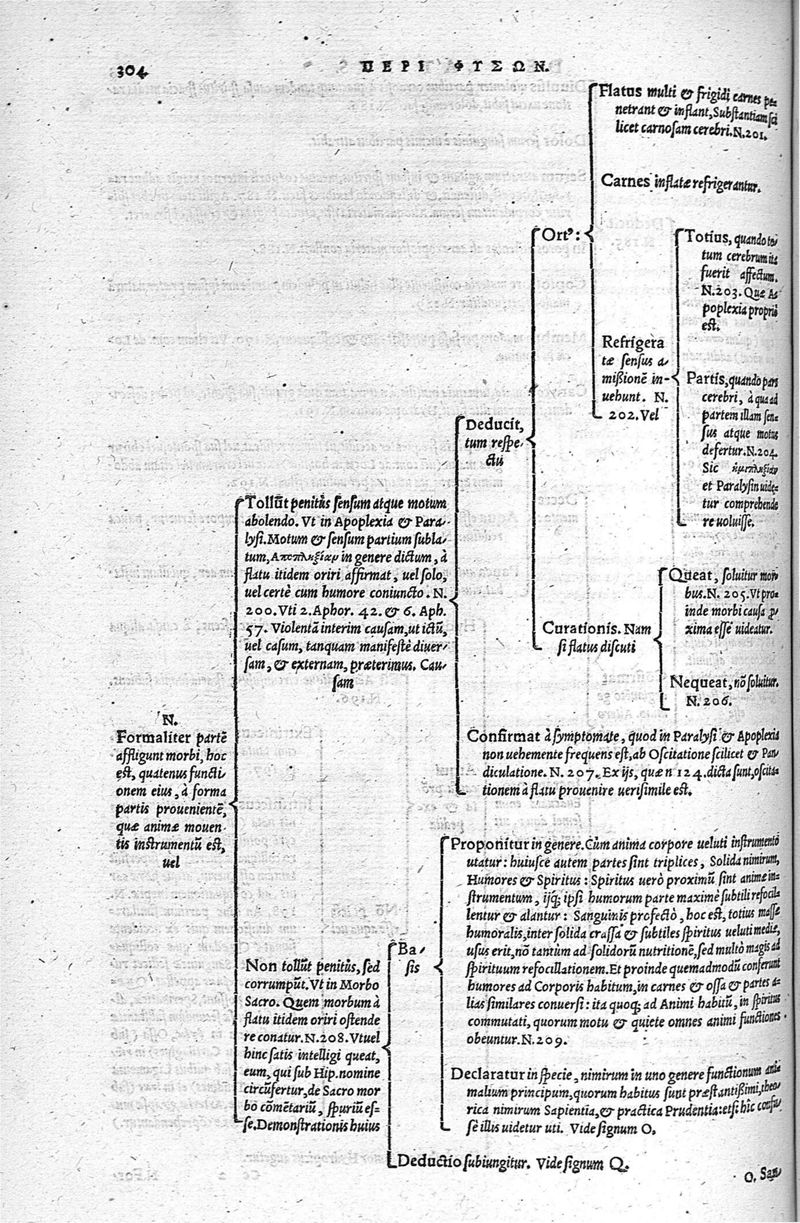 304
ΠΕΡΙ ΦΥΣΩΝ.
N.
Formaliter partē
affligunt morbi, hoc
est, quatenus functi-
onem eius, à forma
partis prouenientē,
quæ animæ mouen-
tis instrumentū est,
uel
Tollūt penitùs sensum atque motum
abolendo. Vt in Apoplexia & Para-
lysi. Motum & sensum partium subla-
tum, Αποπληξίαν in genere dictum, à
flatu itidem oriri affirmat, uel solo,
uel certè cum humore coniuncto. N.
200. Vti 2. Aphor. 42. & 6. Aph.
57. Violentā interim causam, ut ictū,
uel casum, tanquam manifestè diuer-
sam, & externam, præterimus. Cau-
sam
Deducit,
tum respe-
ctu
Ortꝰ:
Flatus multi & frigidi carnes pe-
netrant & inflant, Substantiam sci
licet carnosam cerebri. N. 201.
Carnes inflatæ refrigerantur.
Refrigera
tæ sensus a-
mißionē in-
uehunt. N.
202. Vel
Totius, quando to-
tum cerebrum ita
fuerit affectum.
N. 203. Quæ A-
poplexia propriè
est.
Partis, quando pars
cerebri, à qua ad
partem illam sen-
sus atque motus
defertur. N. 204.
Sic
et Paralysin uide-
tur comprehende
re uoluisse.
Curationis. Nam
si flatus discuti
Queat, soluitur mor-
bus. N. 205. Vt pro-
inde morbi causa ꝓ-
xima esse uideatur.
Nequeat, nō soluitur.
N. 206.
Confirmat à symptomate, quod in Paralysi & Apoplexia
non uehemente frequens est, ab Oscitatione scilicet & Pan-
diculatione. N. 207. Ex ijs, quæ n 124. dicta sunt, oscita-
tionem à flatu prouenire uerisimile est.
Non tollūt penitùs, sed
corrumpūt. Vt in Morbo
Sacro. Quem morbum à
flatu itidem oriri ostende
re conatur. N. 208. Vt uel
hinc satis intelligi queat,
eum, qui sub Hip. nomine
circūfertur, de Sacro mor
bo cōmētariū, spuriū es-
se. Demonstrationis huius
Ba-
sis
Proponitur in genere. Cùm anima corpore ueluti instrumento
utatur: huiusce autem partes sint triplices, Solida nimirum,
Humores & Spiritus: Spiritus uerò proximū sint animæ in-
strumentum, ijq́; ipsi humorum parte maximè subtili refocil-
lentur & alantur: Sanguinis profectò, hoc est, totius massæ
humoralis, inter solida crassa & subtiles spiritus ueluti mediæ,
usus erit, nō tantùm ad solidorū nutritionē, sed multò magis ad
spirituum refocillationem. Et proinde quemadmodū conferunt
humores ad Corporis habitum, in carnes & ossa & partes a-
lias similares conuersi: ita quoq; ad Animi habitū, in spiritus
commutati, quorum motu & quiete omnes animi functiones
obeuntur. N. 209.
Declaratur in specie, nimirum in uno genere functionum ani-
malium principum, quorum habitus sunt præstantißimi, theo-
rica nimirum Sapientia, & practica Prudentia: etsi hic confu-
sè illis uidetur uti. Vide signum O.
Deductio subiungitur. Vide signum Q.
O. San-